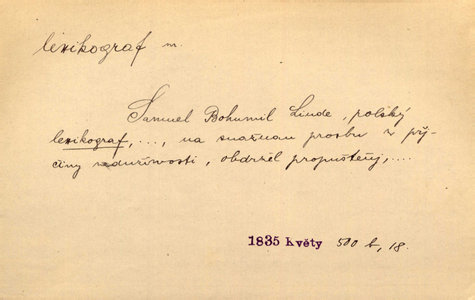 lexikograf m.
Samuel Bohumil Linde, polský
lexikograf, ..., na snažnau prosbu z pří-
činy neduživosti, obdržel propuštěný, ...
1835 Květy 500 b, 18.